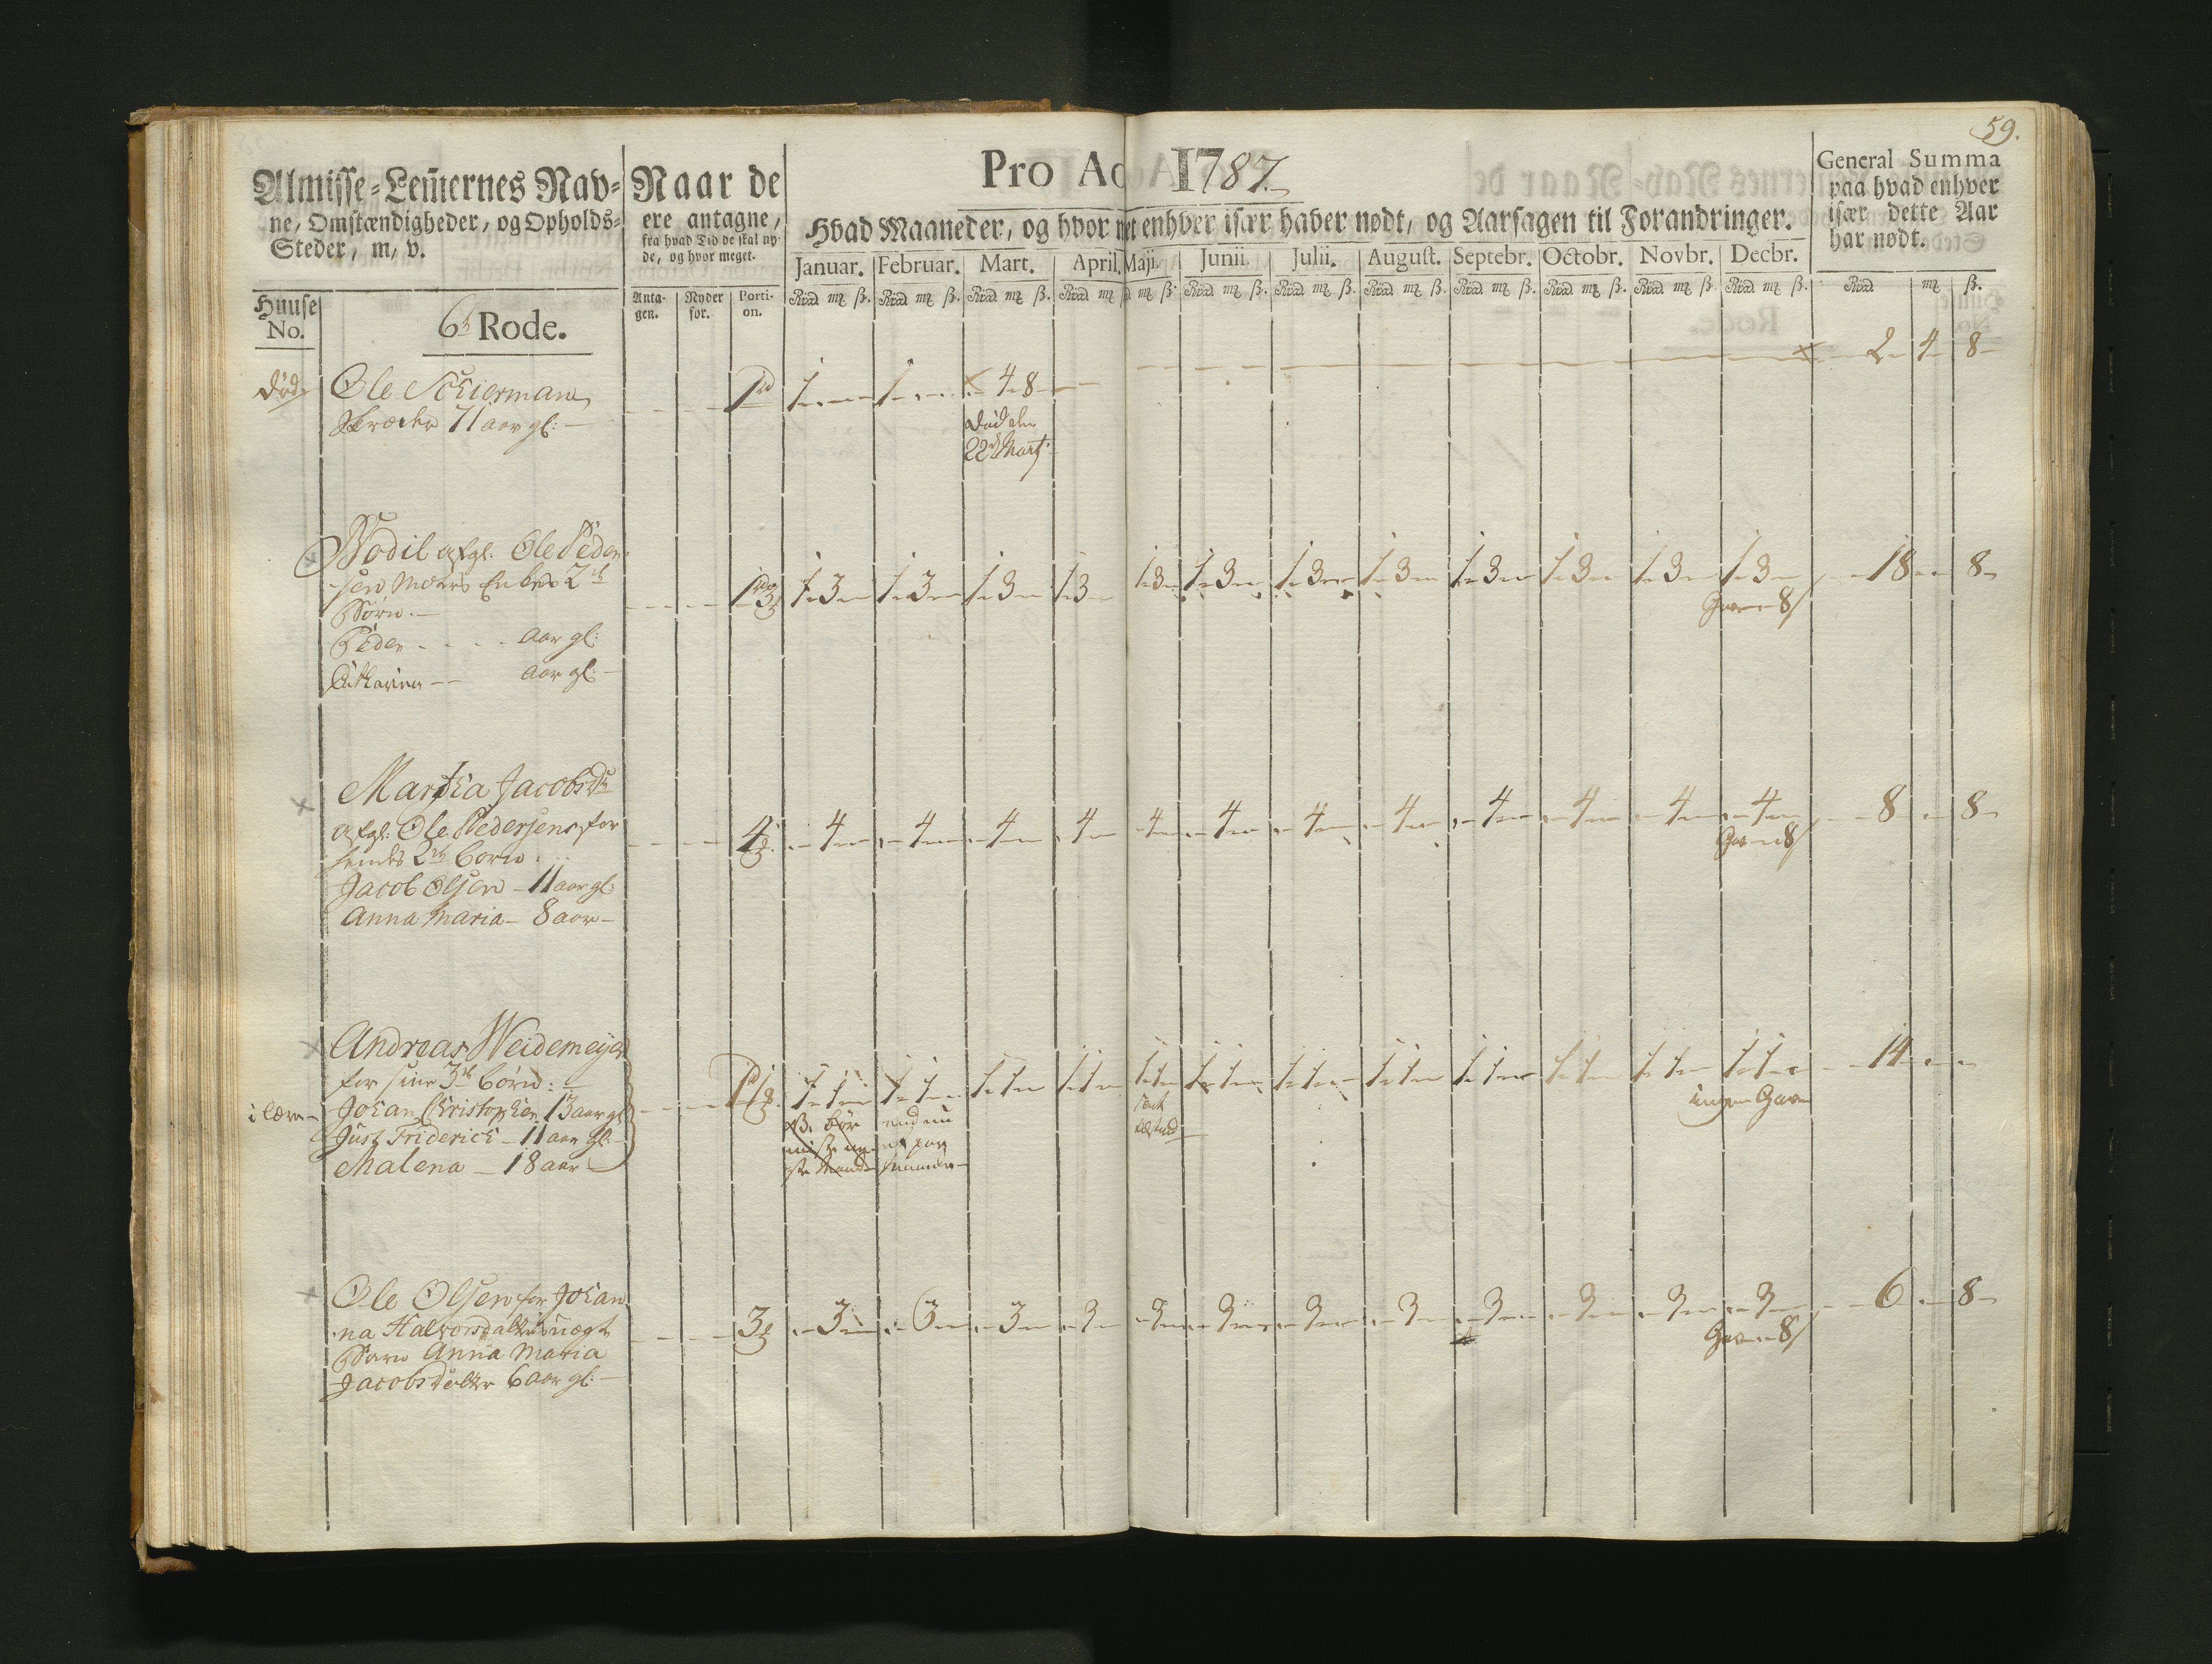 59.
Almisse-Lem̄ernes Nav-
ne, Omstændigheder, og Opholds-
Steder, m, v.
Naar de
ere antagne,
fra hvad Tid de skal ny-
de, og hvor meget.
Pro Ao 1787.
Hvad Maaneder, og hvor met enhver især haver nødt, og Aarsagen til Forandringer.
General Summa
paa hvad enhver
især dette Aar
har nødt.
Januar. Februar. Mart. April. Maji. Junii. Julii. August. Septebr. Octobr. Novbr. Decbr.
Huuse No.
6te Rode.
Anta-gen. Nyder for. Porti-on.
Rdd. mk ß. Rdd. mk ß. Rdd. mk ß. Rdd. mk ß. Rdd. mk ß. Rdd. mk ß. Rdd. mk ß. Rdd. mk ß. Rdd. mk ß. Rdd. mk ß. Rdd. mk ß. Rdd. mk ß. Rdd. mk ß.
død. Ole Schierman 1rd 1 1 x 4 8 x 2 4 8
71 aar gl:
død den
22de Marti
Bodil afgl. Ole Peder-
sen Enke 2de 1rd 3 1 3 1 3 1 3 1 3 1 3 1 3 1 3 1 3 1 3 1 3 1 3 1 3 18 8
Børn
Gave 8
Peder aar gl:
Cathrina aar gl:
x Martha Jacobsdr
afgl: Ole Pedersens for 4 4 4 4 4 4 4 4 4 4 4 4 4 8 8
hendes 2de børn
Gave 8
Jacob Olsen 11 aar gl:
Anna Maria 8 aar
x Andreas Weidemeyer
for sine 3de børn: 1 1 1 1 1 1 1 1 1 1 1 1 1 1 1 1 1 1 1 1 1 1 1 1 1 1 14
i lære Johan Christopher 13 aar gl
ingen Gave
Just Friderich 11 aar gl:
Malena 18 aar
x Ole Olsen for Johan
na Halvorsdatters uægte 3 3 3 3 3 3 3 3 3 3 3 3 3 6 8
Barn Anna Maria
Gave 8
Jacobsdatter 6 aar gl: